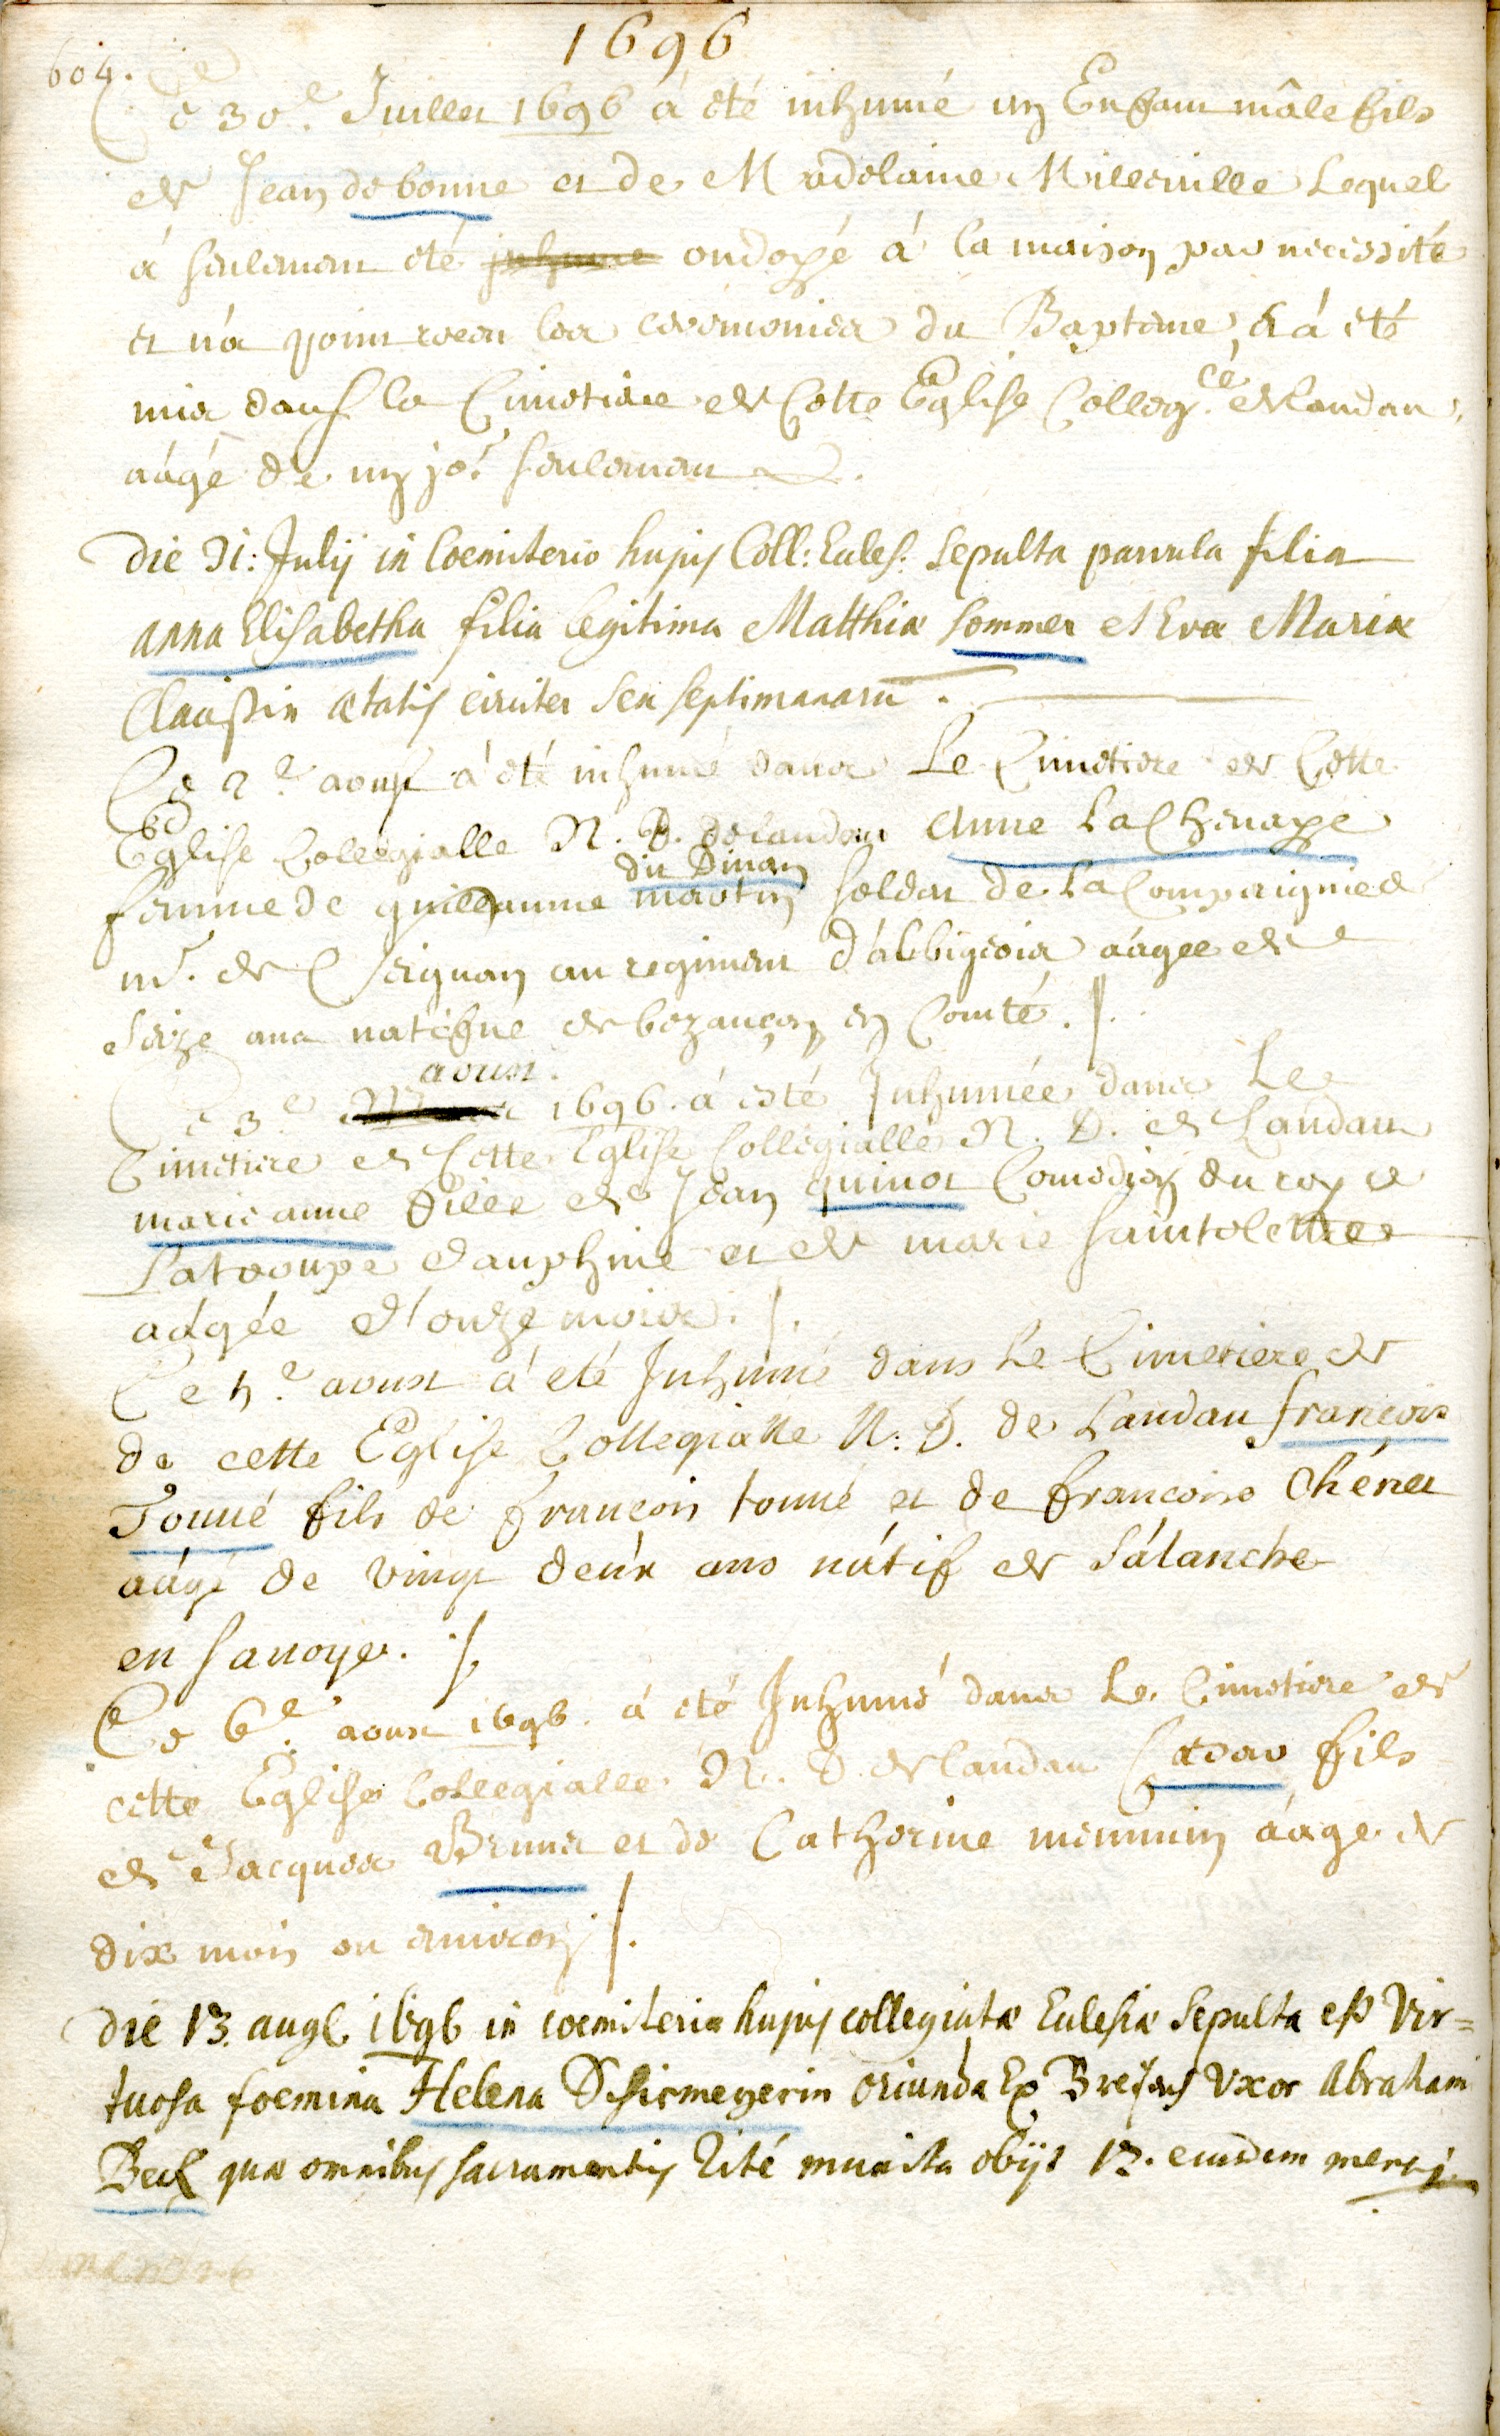 1696
604.
Ce 30e. Juillet 1696 á eté inhumé un Enfant mâle fils
de Jean de bonne et de Madelaine Milleville Lequel
á seulement eté ondoyé á la maison par necessité
et n'a point receu les ceremonies du Bapteme, & á eté
mis dans le Cimetiere de Cette Eglise Colleg.ce de landau,
aágé de un jo.r seulement
Die 31: Julij in Coemiterio hujus Coll: Eccles: Sepulta parvula filia
Anna Elisabetha filia legitima Matthiæ Sommer et Evæ Mariæ
Claussin ætatis circiter sex septimanarū.
Ce 2e aoust á eté inhumé dans Le Cimetiere de Cette
Eglise Collegialle N. D. de landau Anne La Chenaye
femme de guillaume martin dit Dinan soldat de La Compaignie de
mr. de Serignan au regiment d'albigeois aágee de
seize ans natifve de bezançon en Comté.
Ce 3e aoust 1696. á esté Inhumée dans Le
Cimetiere de Cette Eglise Collegialle N. D. de Landau
marie anne fille de Jean quinot Comedien du roy de
La troupe dauphine et de marie saintolette
aágée d'onze mois.
Ce 5e aoust á eté Inhumé dans Le Cimetiere de
de cette Eglise Collegialle N: D. de Landau françois
Tonné fils de françois tonné et de francoise Chénet
aágé de vingt deúx ans nátif de Sálanche
en Savoye.
Ce 6e. aoust 1696. á eté Inhumé dans Le Cimetiere de
cette Eglise Collegialle N. D. de landau fils
de Jacques Brunet et de Catherine mennin aágé de
dix mois ou environ.
Die 13. aug. 1696 in coemiterio hujus collegiatæ Ecclesiæ Sepulta est Vir=
tuosa foemina Helena Schirmeyerin oriunda Ex Uxor Abrahami
Beck quæ omnibus sacramentis Rité munita obijt 12. eiusdem mensis